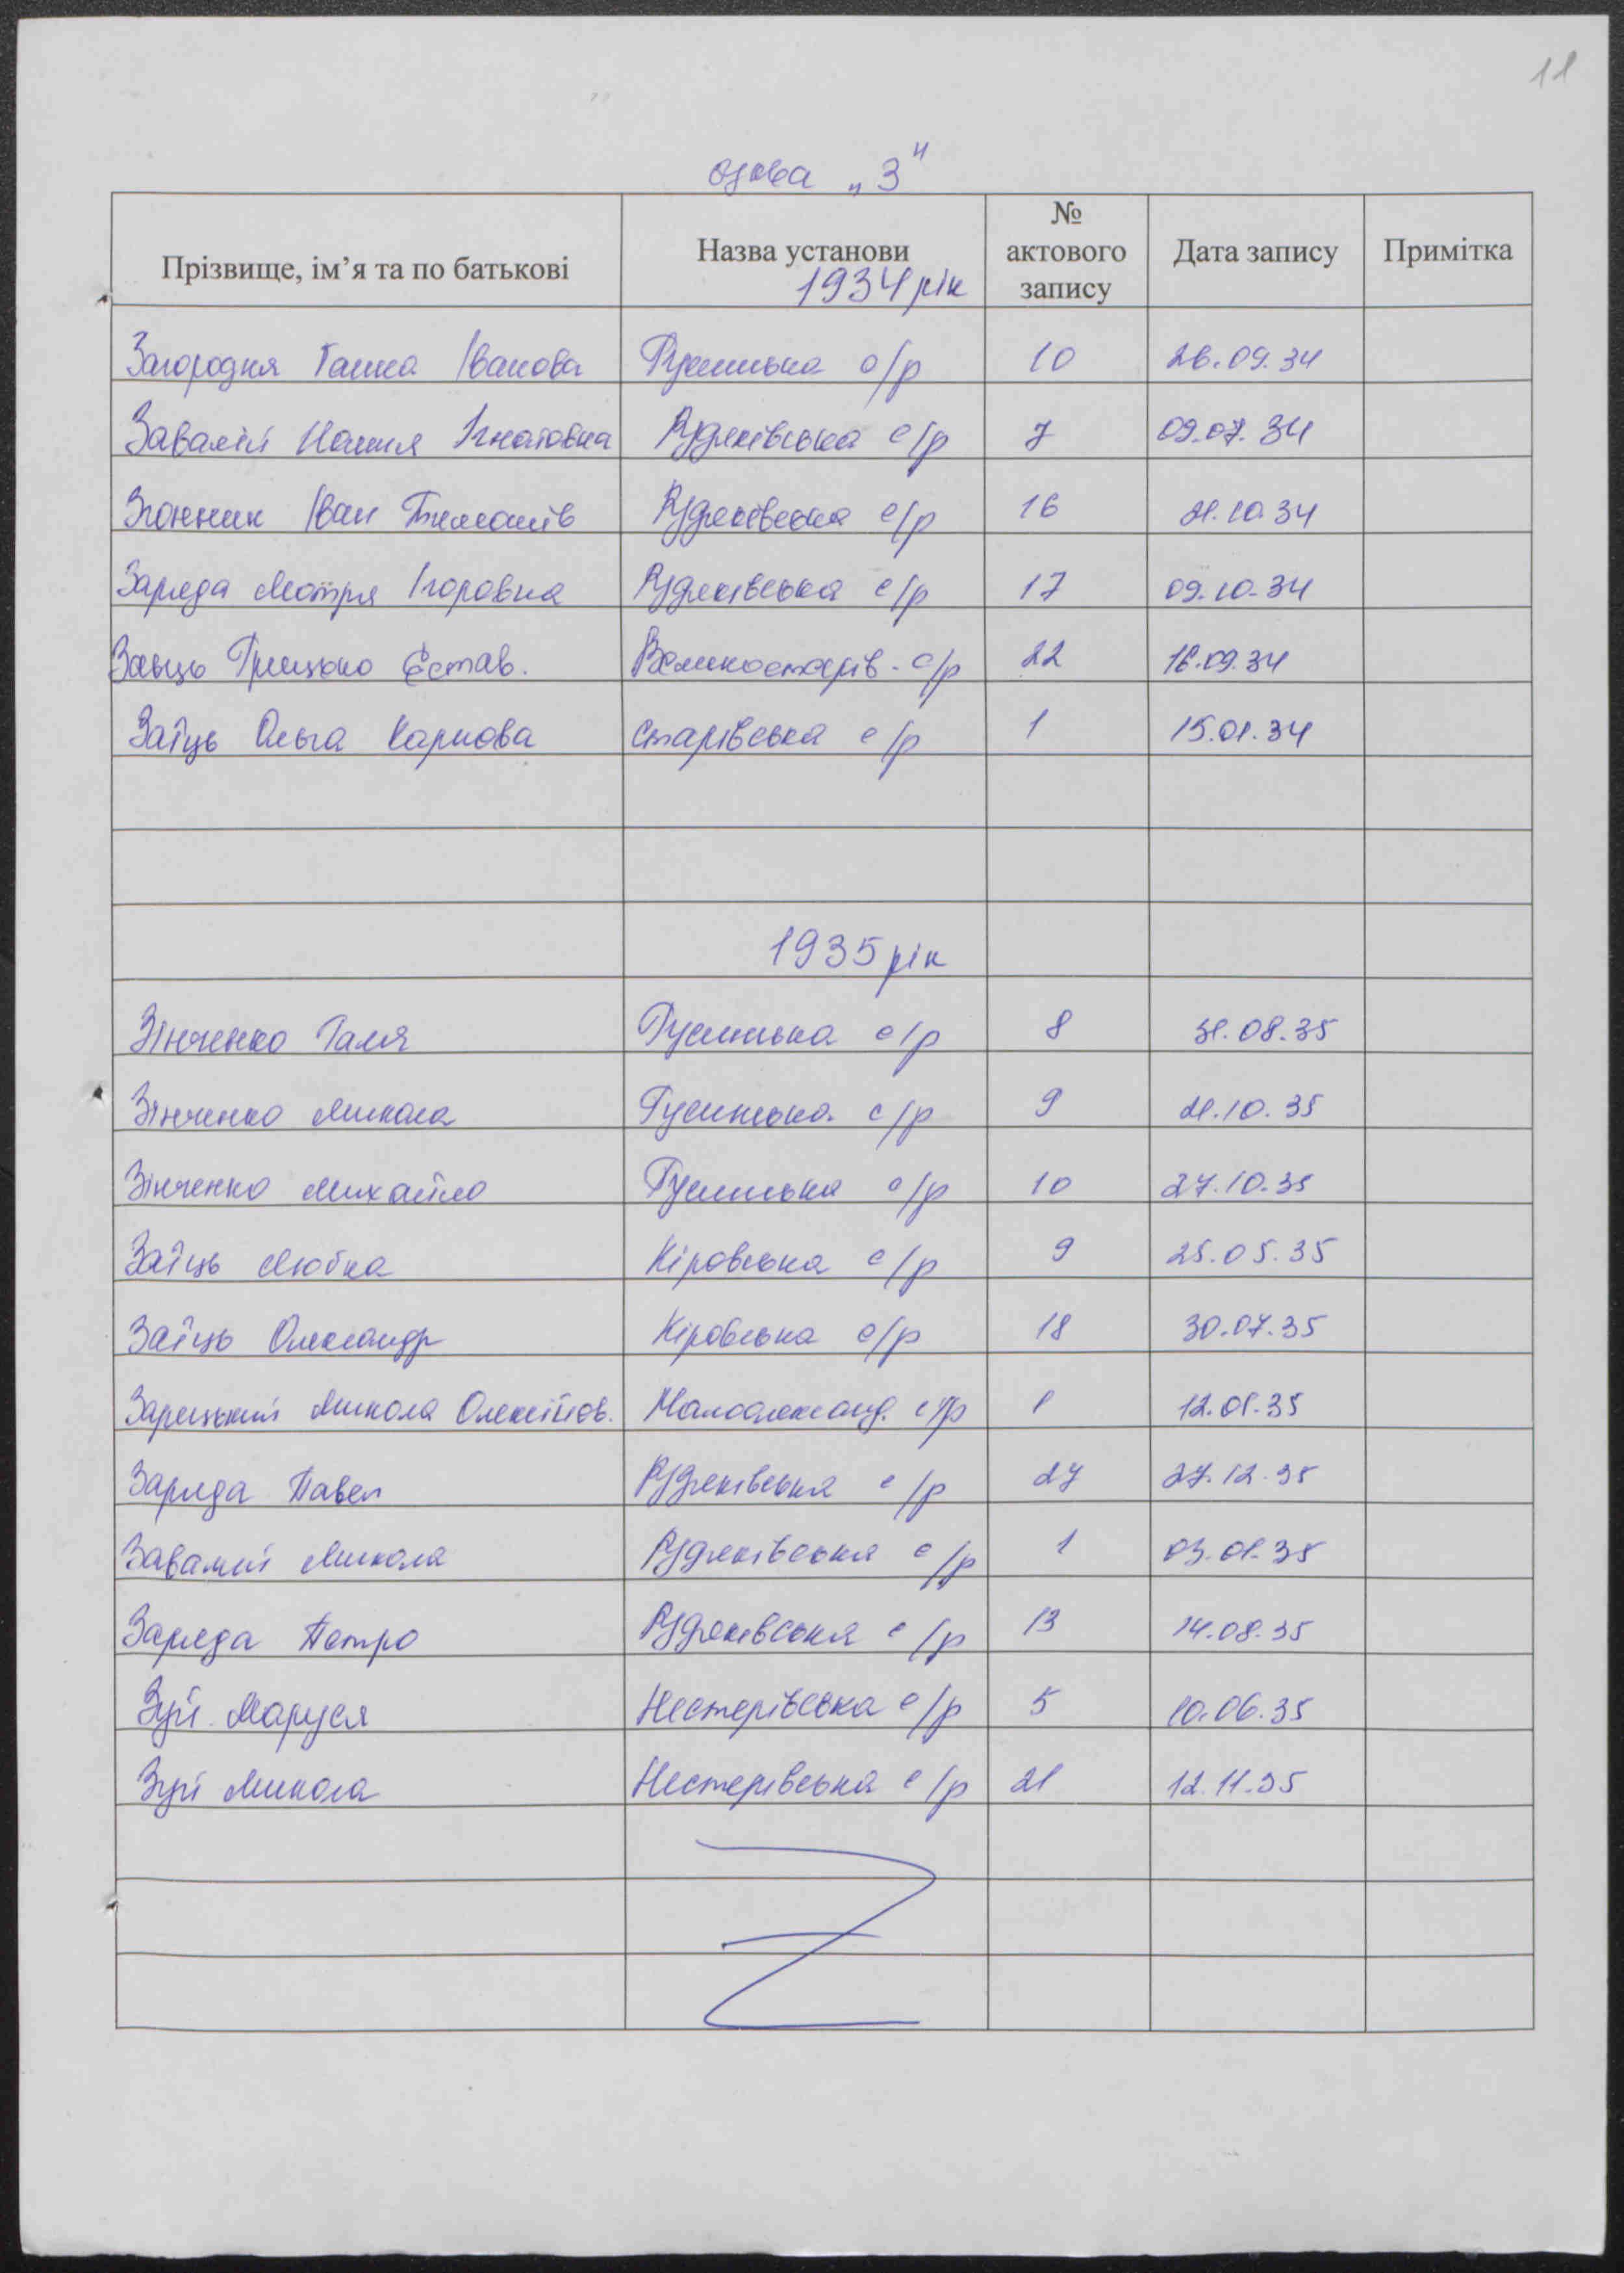 11
"З"
Прізвище, ім’я та по батькові Назва установи № актового запису Дата запису Примітка
1934 рік
Загородня Ганна Іванова Гусинська с/р 10 26.09.34
Завалій Ігнатовна Рудяківська с/р 7 09.07.34
Згонник Іван Рудяківська с/р 16 21.10.34
Заряда Мотря Ігоровна Рудяківська с/р 17 09.10.34
Заєць Грицько Єстав. Великостарів. с/р 22 16.09.34
Заїць Ольга Карпова Старівська с/р 1 15.01.34
1935 рік
Зінченко Галя Гусинська с/р 8 31.08.35
Зінченко Микола Гусинська с/р 9 21.10.35
Зінченко Михайло Гусинська с/р 10 27.10.35
Заїць Любка Кіровська с/р 9 25.05.35
Заїць Олександр Кіровська с/р 18 30.07.35
Зарицький Микола Олексійов. Малоалександ. с/р 1 12.01.35
Заряда Павел Рудяківська с/р 27 27.12.35
Завалій Микола Рудяківська с/р 1 03.01.35
Заряда Петро Рудяківська с/р 13 14.08.35
Зуй Маруся Нестерівська с/р 5 10.06.35
Зуй Микола Нестерівська с/р 21 12.11.35